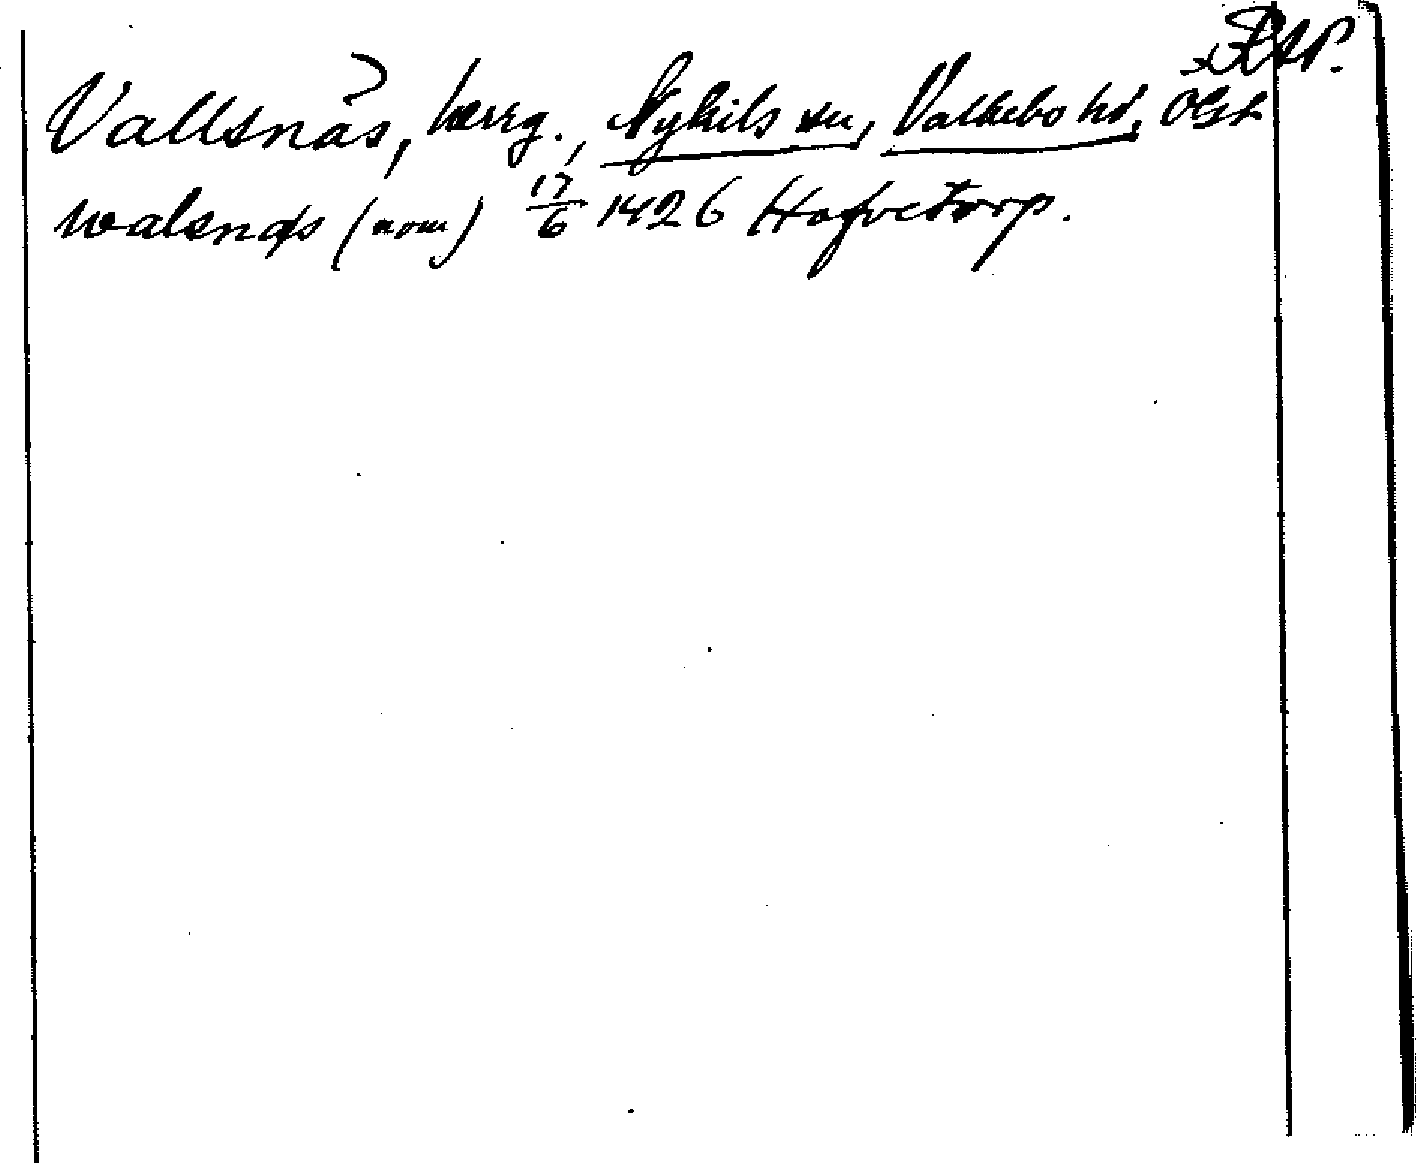 RAP.
Vallsnäs, herrg., Nykils sn, Valkebo hd, Ögl.
walsnæs (nom) 17/6 1426 Hofvetorp.